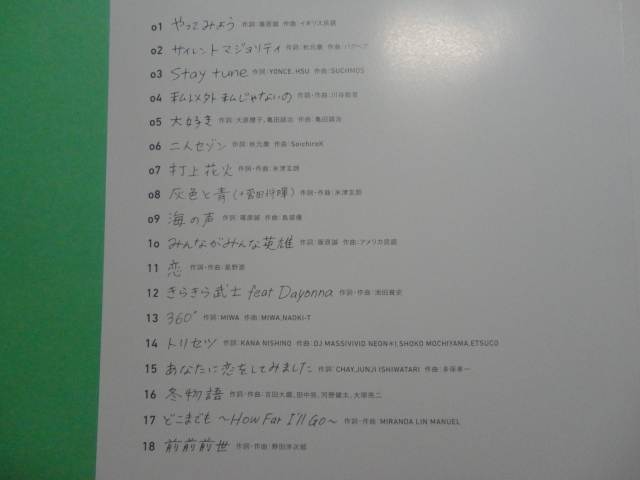 01 やってみよう 作詞:篠原誠 作曲:イギリス民謡
02 サイレントマジョリティ 作詞:秋元康 作曲:バグベア
03 Stay tune 作詞:YONCE,HSU 作曲:SUCHMOS
04 私以外私じゃないの 作詞・作曲:川谷絵音
05 大好き 作詞:大原櫻子,亀田誠治 作曲:亀田誠治
06 二人セゾン 作詞:秋元康 作曲:SoichiroK
07 打上花火 作詞・作曲:米津玄師
08 灰色と青(+菅田将暉) 作詞・作曲:米津玄師
09 海の声 作詞:篠原誠 作曲:島袋優
10 みんながみんな英雄 作詞:篠原誠 作曲:アメリカ民謡
11 恋 作詞・作曲:星野源
12 きらきら武士 feat Dayonna 作詞・作曲:池田貴史
13 360° 作詞:MIWA 作曲:MIWA,NAOKI-T
14 トリセツ 作詞:KANA NISHINO 作曲:DJ MASS(VIVID NEON*),SHOKO MOCHIYAMA,ETSUCO
15 あなたに恋をしてみました 作詞:CHAY,JUNJI ISHIWATARI 作曲:多保孝一
16 冬物語 作詞・作曲:吉田大蔵,田中英,河野健太,大塚亮二
17 どこまでも ~How Far I'll Go~ 作詞・作曲:MIRANDA LIN MANUEL
18 前前前世 作詞・作曲:野田洋次郎